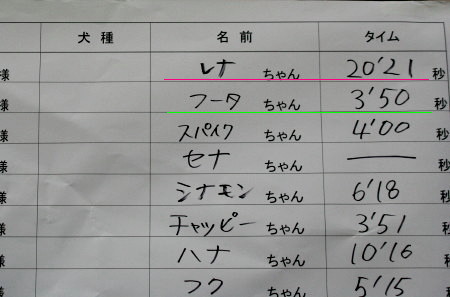 犬種 名前 タイム
様 レナ ちゃん 20'21 秒
様 フータ ちゃん 3'50 秒
様 スパイク ちゃん 4'00 秒
様 セナ ちゃん — 秒
様 シナモン ちゃん 6'18 秒
様 チャッピー ちゃん 3'51 秒
様 ハナ ちゃん 10'16 秒
様 フク ちゃん 5'15 秒